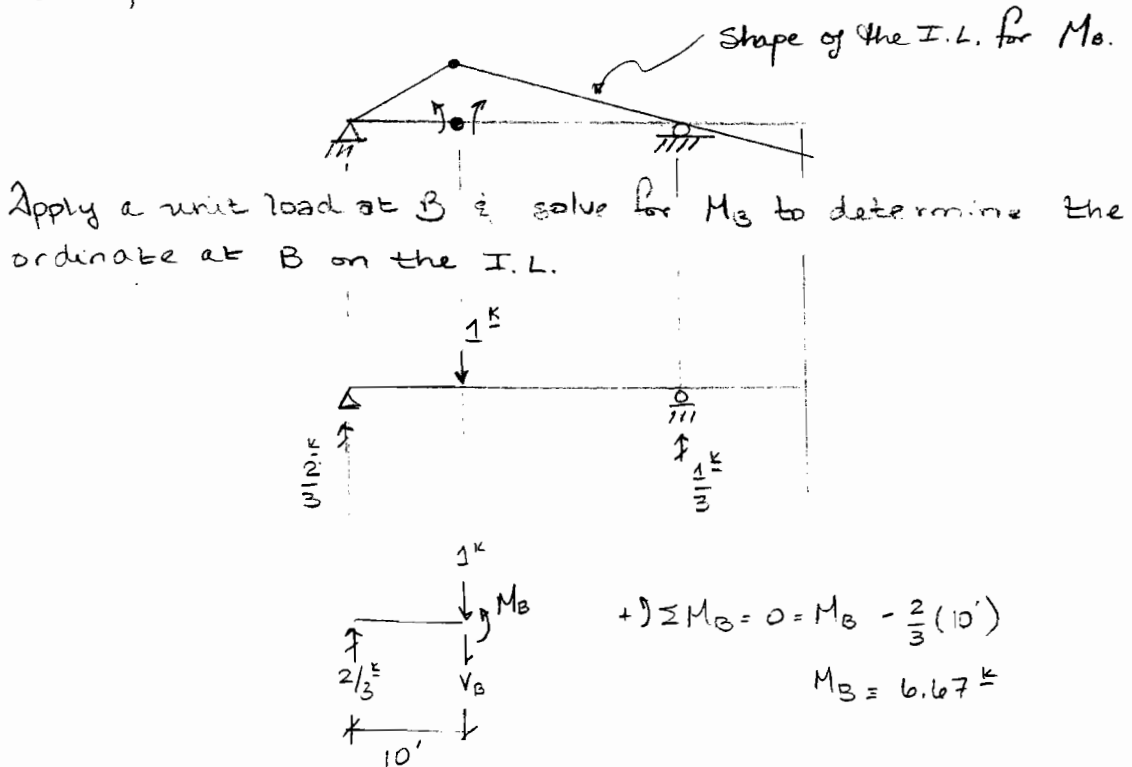 Shape of the I.L. for M_B.
Apply a unit load at B & solve for M_B to determine the
ordinate at B on the I.L.
1^k
2/3^k
1/3^k
1^k
M_B
+) Σ M_B = 0 = M_B - 2/3 (10')
2/3^k
V_B
M_B = 6.67^k
10'